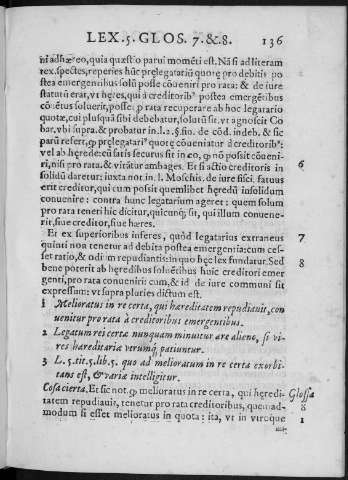 LEX. 5. GLOS. 7. & 8. 136
adhæreo, quia quæstio parui momēti est. Nā si ad literam
rex. spectes, reperies hūc prelegatariū quoqȝ pro debitis po
stea emergentibus solū posse cōueniri pro rata: & de iure
statutū erat, vt heres, qui à creditorib⁹ postea emergētibus
cōuētus soluerit, posset pro rata recuperare ab hoc legatario
quotæ, cui plusquā sibi debebatur, solutū sit. vt agnoscit Co
bar. vbi supra. & probatur in l. 2. §. fin. de cōd. indeb. & sic
parū refert, prelegatari⁹ quoqȝ cōueniatur à creditorib⁹:
vel ab herede: cū satis securus sit in eo, nō possit cōueni-
ri, nisi pro rata. & vitātur ambages. Et si actio creditoris in 6
solidū daretur: iuxta not. in l. Moschis. de iure fisci. fatuus
erit creditor, qui cum possit quemlibet heredū insolidum
conuenire: contra hunc legatarium ageret: quem solum
pro rata teneri hic dicitur, quicunqȝ sit, qui illum conuene-
rit, siue creditor, siue hæres.
Et ex superioribus inferes, quòd legatarius extraneus 7
quinti non tenetur ad debita postea emergentia: cum ces-
set ratio, & odium repudiantis: in quo hęc lex fundatur. Sed 8
bene poterit ab heredibus soluētibus huic creditori emer
genti, pro rata conueniri: cum, & id de iure communi sit
expressum: vt supra pluries dictum est.
1 Melioratus in re certa, qui hæreditatem repudiauit, con
uenitur pro rata à creditoribus emergentibus.
2 Legatum rei certa nunquam minuitur are alieno, si vi-
res hæreditariæ verumq́ patiuntur.
3 L. 5. tit. 5. lib. 5. quo ad melioratum in re certa exorbi-
tans est, & variè intelligitur.
Cosa cierta. Et sic not. melioratus in re certa, qui heredi- Glossa
tatem repudiauit, tenetur pro rata creditoribus, quemad- 8
modum si esset melioratus in quota: ita, vt in vtroque 1